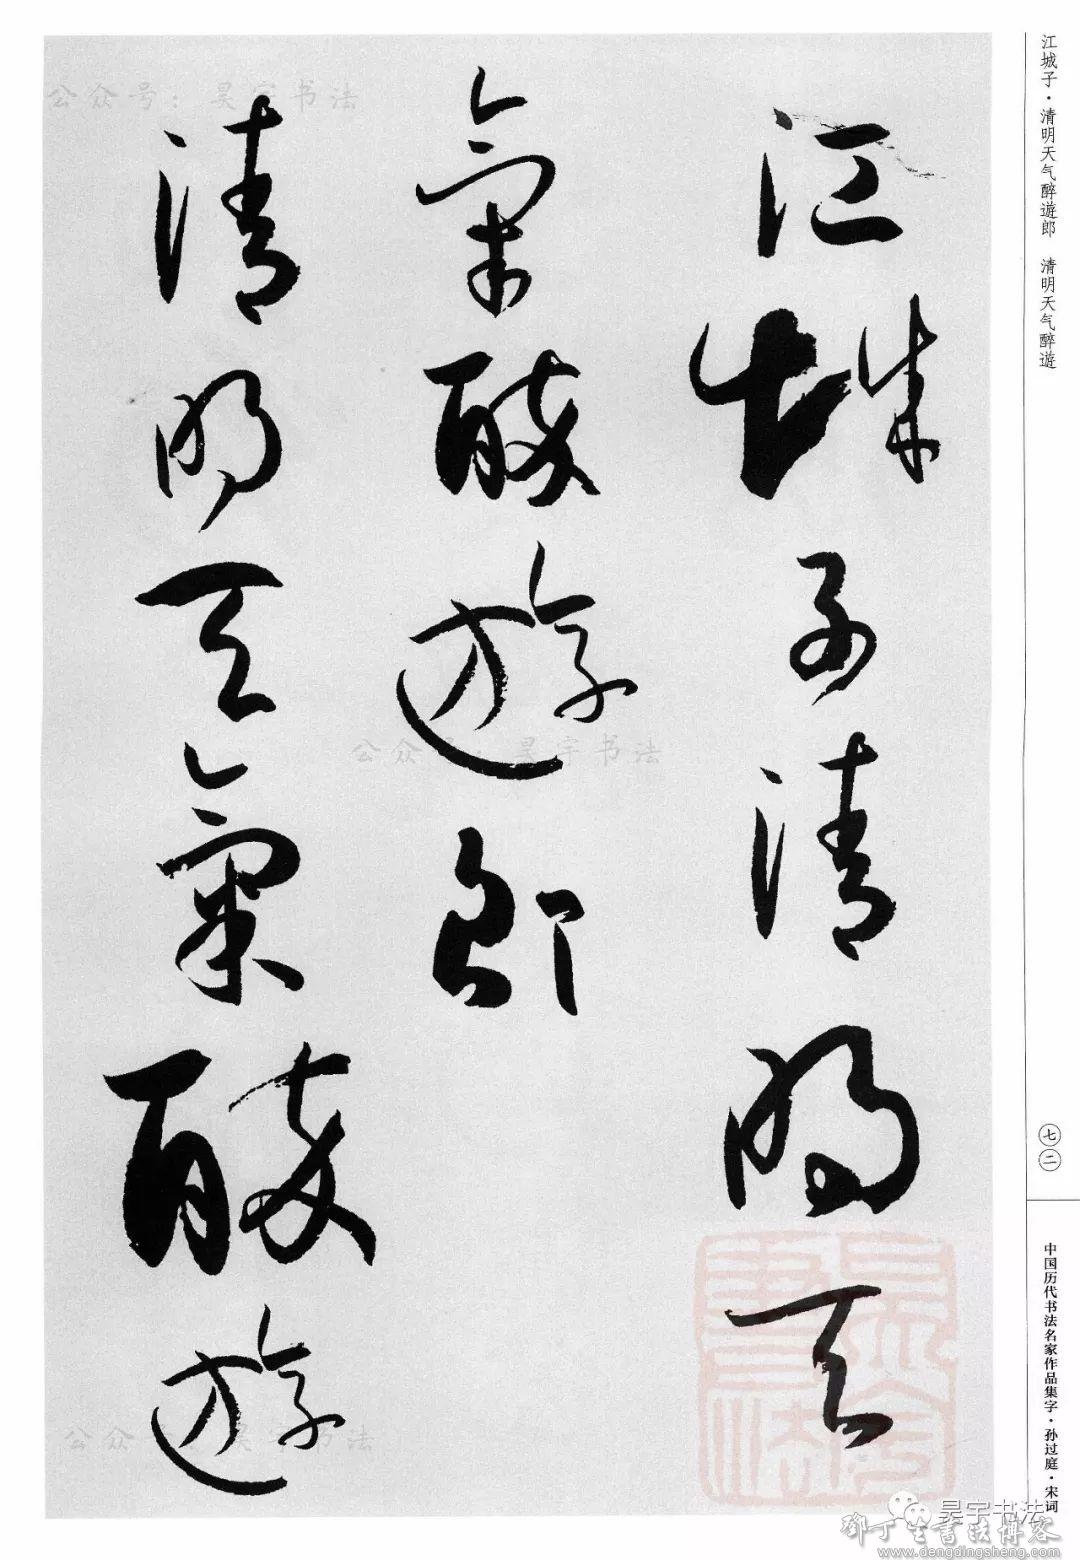 江城子清明天
氣醉遊郎
清明天氣醉遊
江城子·清明天气醉遊郎　清明天气醉遊
七二
中国历代书法名家作品集字·孙过庭·宋词
公众号：昊宇书法
公众号：昊宇书法
公众号：昊宇书法
昊宇书法
昊宇书法
鄧丁生書法博客
www.dengdingsheng.com